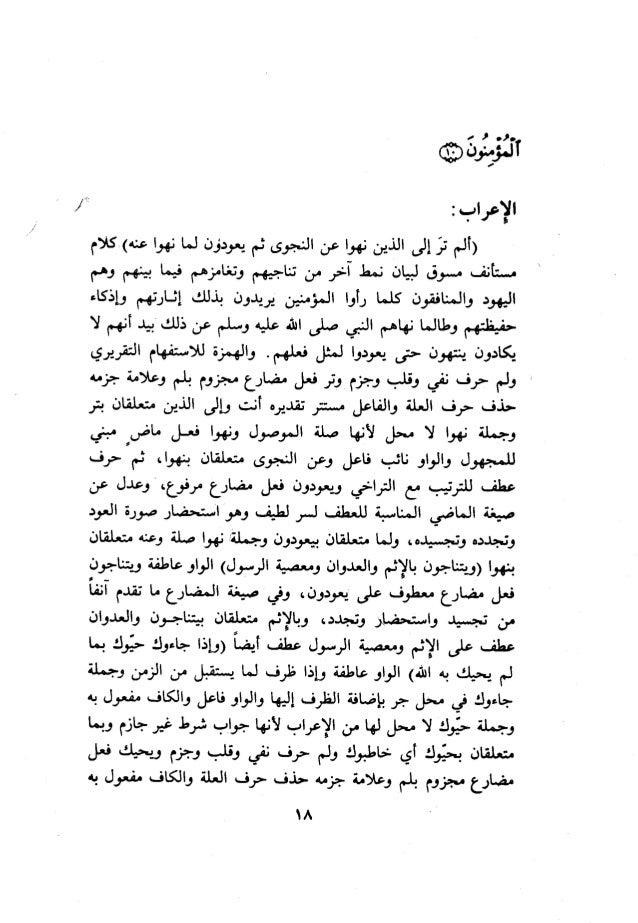 ٱلْمُؤْمِنُونَ ١٠
الإعراب :
(ألم ترَ إلى الذين نهوا عن النجوى ثم يعودوْن لما نهوا عنه) كلام
مستأنف مسوق لبيان نمط آخر من تناجيهم وتغامزهم فيما بينهم وهم
اليهود والمنافقون كلما رأوا المؤمنين يريدون بذلك إثـارتهم وإذكاء
حفيظتهم وطالما نهاهم النبي صلى الله عليه وسلم عن ذلك بيد أنهم لا
يكادون ينتهون حتى يعودوا لمثل فعلهم. والهمزة للاستفهام التقريري
ولم حرف نفي وقلب وجزم وتر فعل مضارع مجزوم بلم وعلامة جزمه
حذف حرف العلة والفاعل مستتر تقديره أنت وإلى الذين متعلقان بتر
وجملة نهوا لا محل لأنها صلة الموصول ونهوا فعـل ماض مبني
للمجهول والواو نائب فاعل وعن النجوى متعلقان بنهوا، ثم حرف
عطف للترتيب مع التراخي ويعودون فعل مضارع مرفوع، وعدل عن
صيغة الماضي المناسبة للعطف لسر لطيف وهو استحضار صورة العود
وتجدده وتجسيده، ولما متعلقان بيعودون وجملة نهوا صلة وعنه متعلقان
بنهوا (ويتناجون بالإثم والعدوان ومعصية الرسول) الواو عاطفة ويتناجون
فعل مضارع معطوف على يعودون، وفي صيغة المضارع ما تقدم آنفاً
من تجسيد واستحضار وتجدد، وبالإثم متعلقان بيتناجـون والعدوان
عطف على الإثم ومعصية الرسول عطف أيضاً (وإذا جاءوك حيّوك بما
لم يحيك به الله) الواو عاطفة وإذا ظرف لما يستقبل من الزمن وجملة
جاءوك في محل جر بإضافة الظرف إليها والواو فاعل والكاف مفعول به
وجملة حيّوك لا محل لها من الإعراب لأنها جواب شرط غير جازم وبما
متعلقان بحيّوك أي خاطبوك ولم حرف نفي وقلب وجزم ويحيك فعل
مضارع مجزوم بلم وعلامة جزمه حذف حرف العلة والكاف مفعول به
١٨